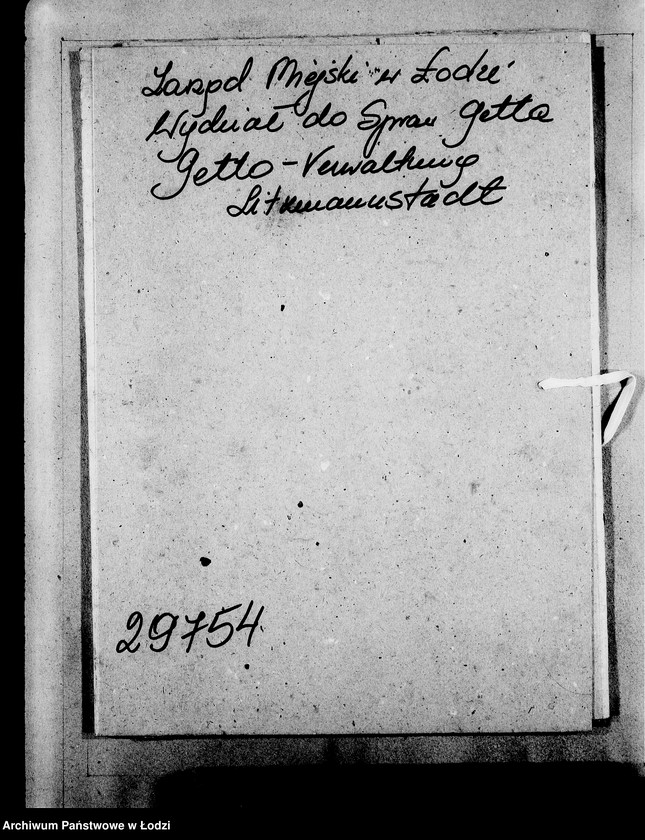 Zarząd Miejski w Łodzi
Wydział do Spraw Getta
Getto-Verwaltung
Litzmannstadt
29754
Archiwum Państwowe w Łodzi